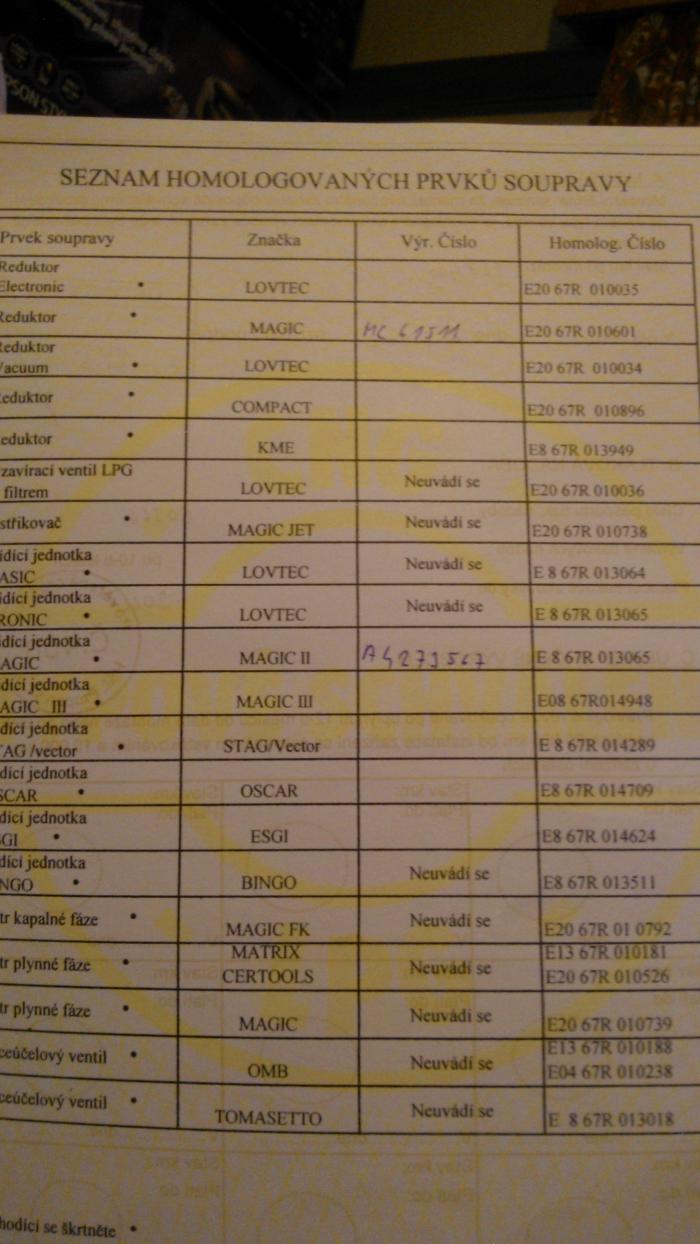 SEZNAM HOMOLOGOVANÝCH PRVKŮ SOUPRAVY
Prvek soupravy Značka Výr. Číslo Homolog. Číslo
Reduktor
Electronic • LOVTEC E20 67R 010035
Reduktor • MAGIC MC 61511 E20 67R 010601
Reduktor
Vacuum • LOVTEC E20 67R 010034
eduktor • COMPACT E20 67R 010896
eduktor • KME E8 67R 013949
zavírací ventil LPG
filtrem LOVTEC Neuvádí se E20 67R 010036
střikovač • MAGIC JET Neuvádí se E20 67R 010738
ídící jednotka
ASIC • LOVTEC Neuvádí se E 8 67R 013064
ídící jednotka
RONIC • LOVTEC Neuvádí se E 8 67R 013065
ídící jednotka
AGIC • MAGIC II A4273567 E 8 67R 013065
dící jednotka
AGIC III • MAGIC III E08 67R014948
dící jednotka
TAG /vector • STAG/Vector E 8 67R 014289
dící jednotka
SCAR • OSCAR E8 67R 014709
dící jednotka
GI • ESGI E8 67R 014624
dící jednotka
NGO • BINGO Neuvádí se E8 67R 013511
tr kapalné fáze • MAGIC FK Neuvádí se E20 67R 01 0792
tr plynné fáze • MATRIX Neuvádí se E13 67R 010181
CERTOOLS E20 67R 010526
tr plynné fáze • MAGIC Neuvádí se E20 67R 010739
ceúčelový ventil • OMB Neuvádí se E13 67R 010188
E04 67R 010238
ceúčelový ventil • TOMASETTO Neuvádí se E 8 67R 013018
hodící se škrtněte •